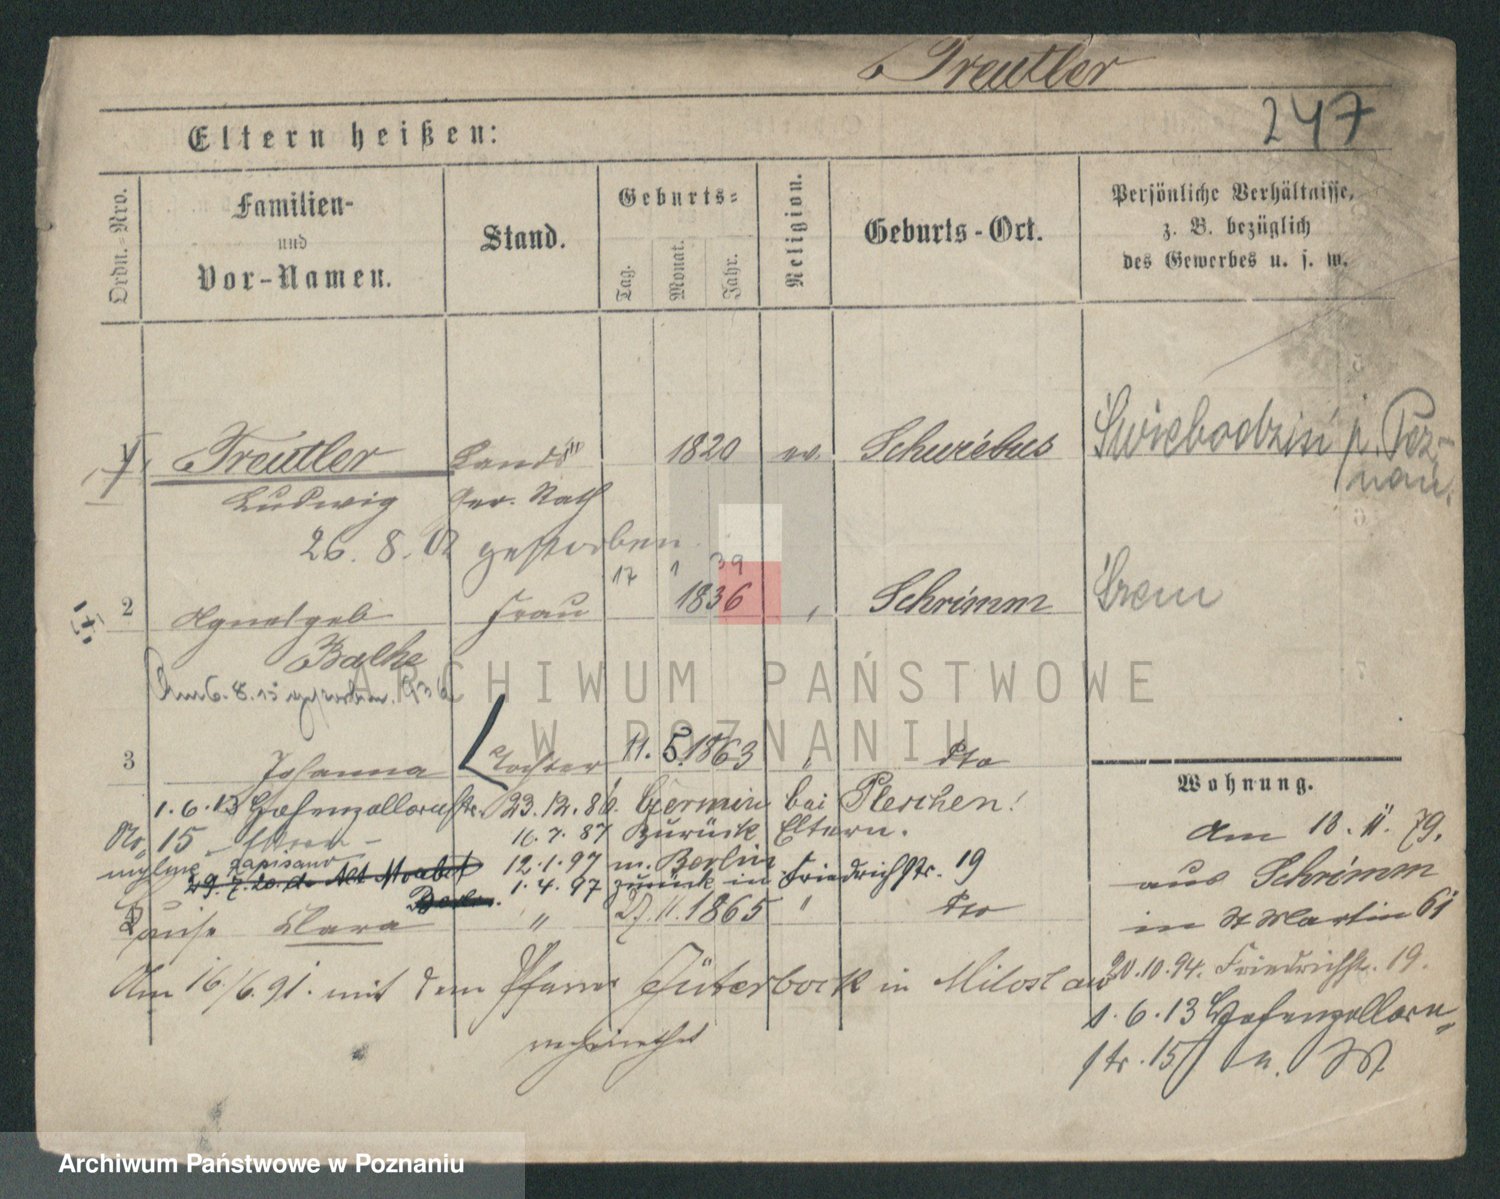 Treutler
247
Eltern heißen:
Ordn.-Nro.
Familien-
und
Vor-Namen.
Stand.
Geburts-
Tag.
Monat.
Jahr.
Religion.
Geburts-Ort.
Persönliche Verhältnisse,
z. B. bezüglich
des Gewerbes u. s. w.
1. Treutler Lands 1820 ev. Schwiebus Świebodzin p. Poz-
Ludwig Ger. Rath nań.
26. 8. 02 gestorben
17 1 39
2 Agnes geb Frau 1836 " Schrimm Śrem
Balke
Am 6. 8. 15 gestorben. 936
ARCHIWUM PAŃSTWOWE
W POZNANIU
3 Johanna Tochter 11. 5. 1863 " dto
Wohnung.
1. 6. 13 Hohenzollernstr. 23. 12. 86. Germin bei Pleschen!
No. 15 16. 7. 87 zurück Eltern.
Am 13. 11. 79.
12. 1. 97 n. Berlin
29. 7. 20 Alt Moabit 1. 4. 97 zurück in Friedrichstr. 19
aus Schrimm
Berlin.
Louise Clara " 27. 11. 1865 " dto
in St Martin 61
Am 16./6. 91. mit dem Pfarrer Jüterbock in Miloslaw
20. 10. 94. Friedrichstr. 19.
verheirathet
1. 6. 13 Hohenzollern-
str. 15
Archiwum Państwowe w Poznaniu